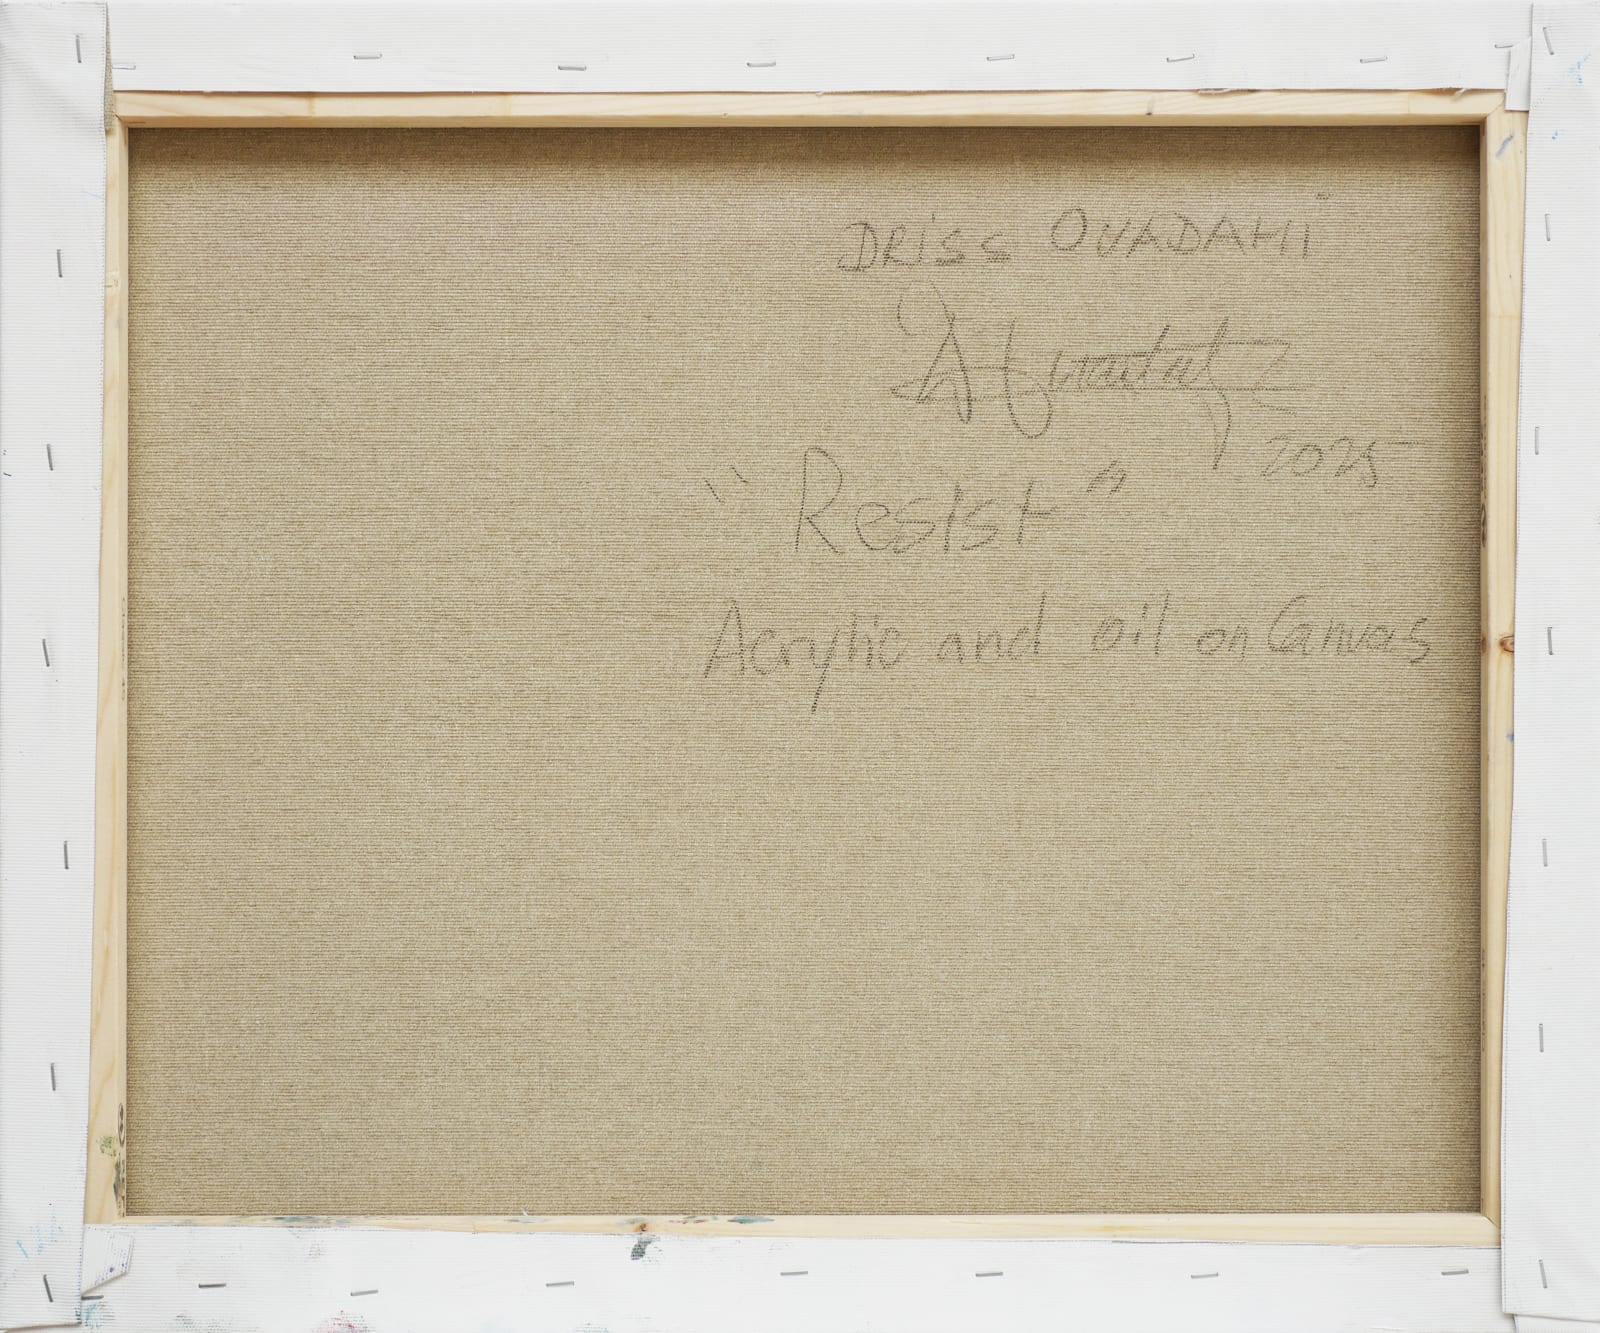 DRISS OUADAHI
2025
"Resist"
Acrylic and oil on Canvas